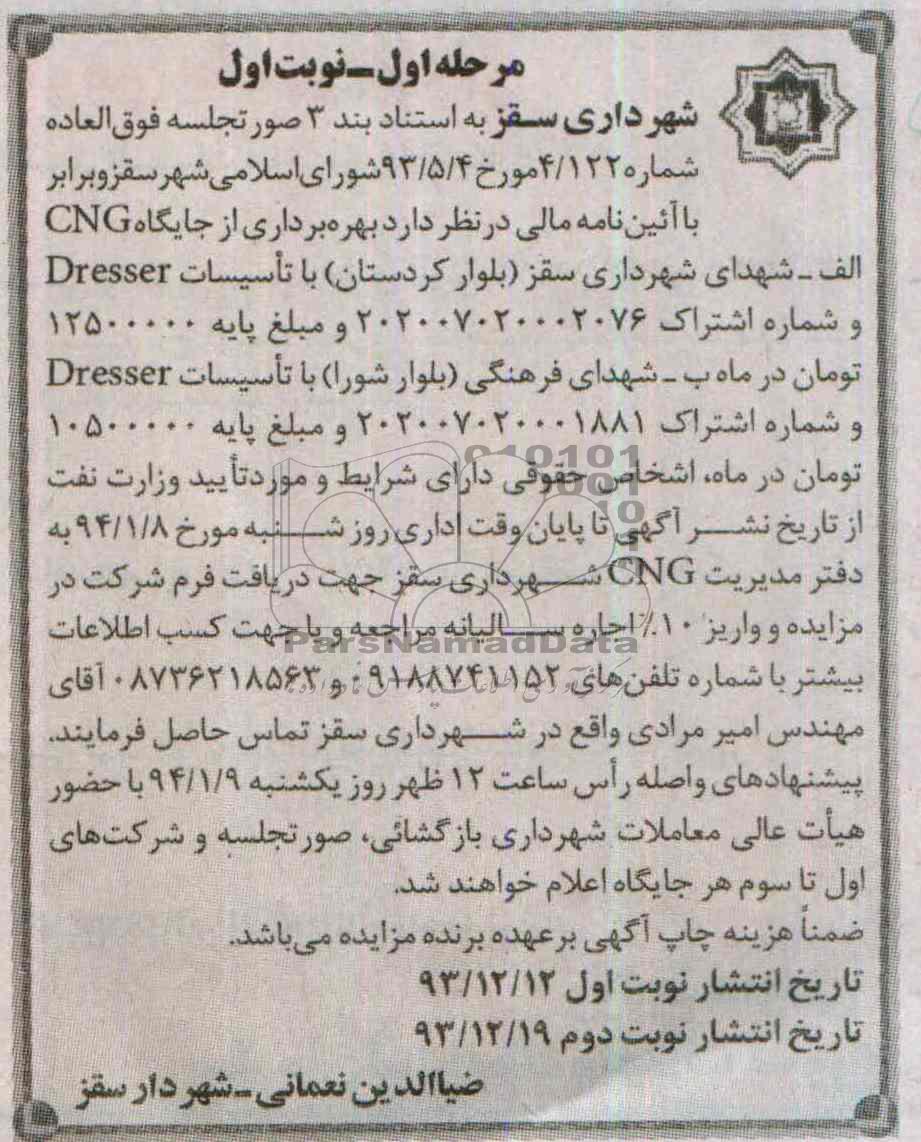 مرحله اول ـ نوبت اول
شهرداری سقز به استناد بند ۳ صورتجلسه فوق‌العاده
شماره ۴/۱۲۲مورخ ۹۳/۵/۴شورای‌اسلامی‌شهر سقزوبرابر
با آئین‌نامه مالی در نظر دارد بهره‌برداری از جایگاه CNG
الف ـ شهدای شهرداری سقز (بلوار کردستان) با تأسیسات Dresser
و شماره اشتراک ۲۰۲۰۰۷۰۲۰۰۰۲۰۷۶ و مبلغ پایه ۱۲۵۰۰۰۰۰۰
تومان در ماه ب ـ شهدای فرهنگی (بلوار شورا) با تأسیسات Dresser
و شماره اشتراک ۲۰۲۰۰۷۰۲۰۰۰۱۸۸۱ و مبلغ پایه ۱۰۵۰۰۰۰۰۰
تومان در ماه، اشخاص حقوقی دارای شرایط و موردتأیید وزارت نفت
از تاریخ نشر آگهی تا پایان وقت اداری روز شنبه مورخ ۹۴/۱/۸ به
دفتر مدیریت CNG شهرداری سقز جهت دریافت فرم شرکت در
مزایده و واریز ۱۰٪ اجاره سالیانه مراجعه و یا جهت کسب اطلاعات
بیشتر با شماره تلفن‌های ۰۹۱۸۸۷۴۱۱۵۲ و ۰۸۷۳۶۲۱۸۵۶۳ آقای
مهندس امیر مرادی واقع در شهرداری سقز تماس حاصل فرمایند.
پیشنهادهای واصله رأس ساعت ۱۲ ظهر روز یکشنبه ۹۴/۱/۹ با حضور
هیأت عالی معاملات شهرداری بازگشائی، صورتجلسه و شرکت‌های
اول تا سوم هر جایگاه اعلام خواهند شد.
ضمناً هزینه چاپ آگهی برعهده برنده مزایده می‌باشد.
تاریخ انتشار نوبت اول ۹۳/۱۲/۱۲
تاریخ انتشار نوبت دوم ۹۳/۱۲/۱۹
ضیاالدین نعمانی ـ شهردار سقز
ParsNamadData